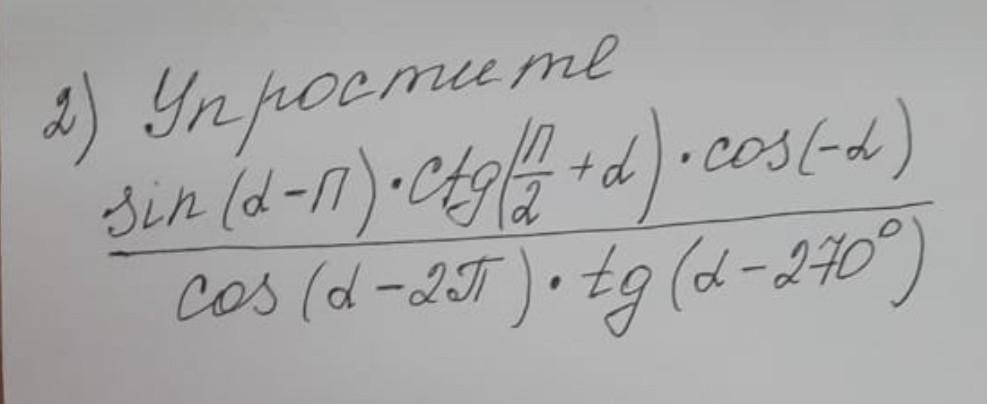 2) Упростите
sin(α-π)·ctg(π/2+α)·cos(-α)
cos(α-2π)·tg(α-270°)